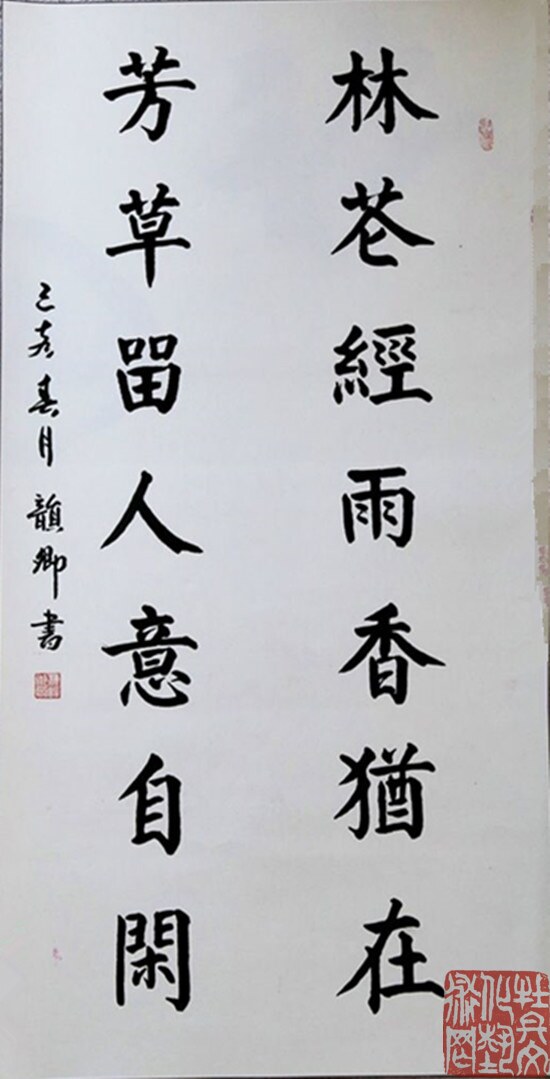 林花經雨香猶在
芳草留人意自閑
己亥春月 韻卿書